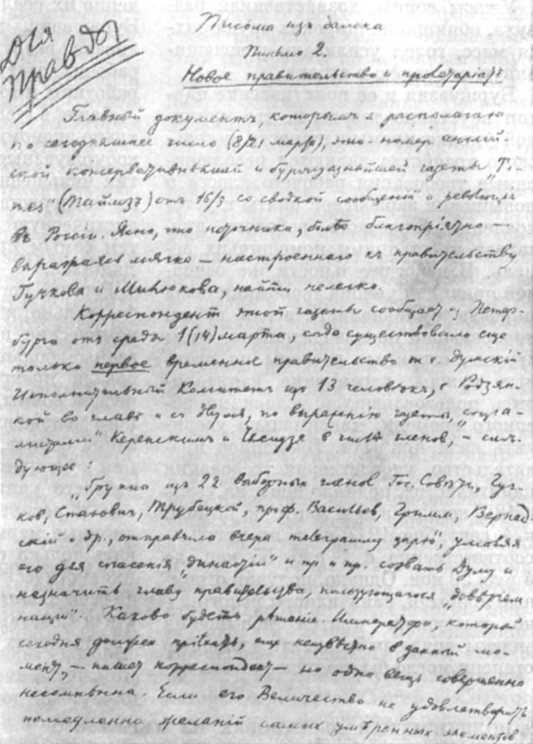 Для
Правды
Письма изъ далека
Письмо 2.
Новое правительство и пролетаріатъ
Главный документъ, которымъ я располагаю
по сегодняшнее число (8/21 марта), это — номер англій-
ской консервативнѣйшей и буржуазнѣйшей газеты „Ti-
mes" (Таймсъ) отъ 16/3 со сводкой сообщеній о революціи
въ Россіи. Ясно, что источника, болѣе благопріятно —
выражаясь мягко — настроенного къ правительству
Гучкова и Милюкова, найти нелегко.
Корреспондент этой газеты сообщает из Петер-
бурга отъ среды 1 (14) марта, когда существовало еще
только первое временное правительство т. е. думскій
Исполнительный Комитетъ из 13 человѣкъ, с Родзян-
кой во главе и съ двумя, по выраженію газеты, „соціа-
листами" Керенскимъ и Чхеидзе в числѣ членов, — слѣ-
дующее:
„Группа из 22 выборных членов Гос. Совѣта, Гуч-
ков, Стахович, Трубецкой, проф. Васильев, Гримм, Вернад-
скій и др., отправила вчера телеграмму царю", умоляя
его для спасенія „династіи" и пр. и пр. созвать Думу и
назначить главу правительства, пользующагося „довѣріем
націи". Каково будетъ рѣшеніе Императора, который
сегодня должен пріѣхать, еще неизвѣстно в данный мо-
мент, — пишет корреспондент — но одна вещь совершенно
несомнѣнна. Если его Величество не удовлетворитъ
немедленно желаній самых умѣренных элементов